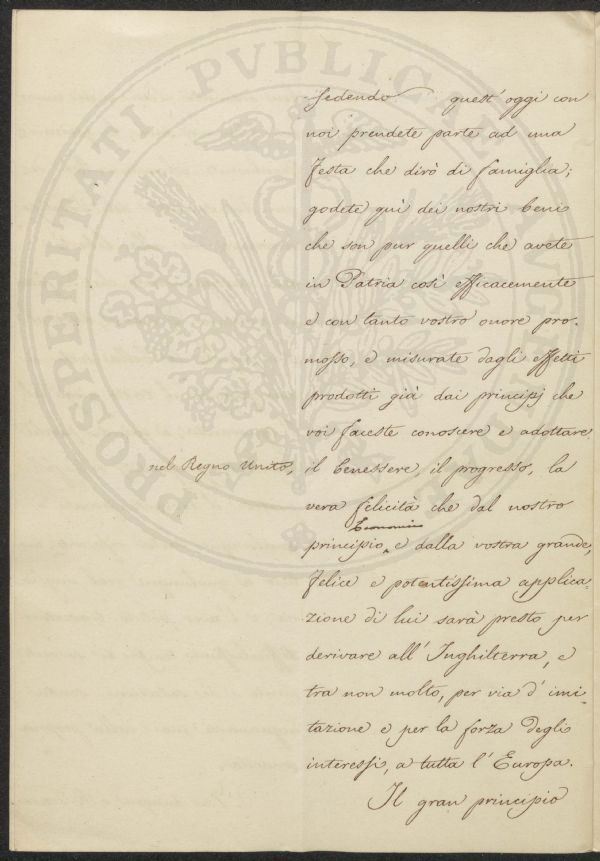 sedendo quest' oggi con
noi prendete parte ad una
festa che dirò di famiglia;
godete quì dei nostri beni
che son pur quelli che avete
in Patria così efficacemente
e con tanto vostro onore pro-
mosso, e misurate dagli effetti
prodotti già dai principj che
voi faceste conoscere e adottare
nel Regno Unito,
il benessere, il progresso, la
vera felicità che dal nostro
Economico
principio, e dalla vostra grande,
felice e potentissima applica-
zione di lui sarà presto per
derivare all' Inghilterra, e
tra non molto, per via d' imi-
tazione e per la forza degli
interessi, a tutta l' Europa.
Il gran principio
PROSPERITATI PVBLICAE